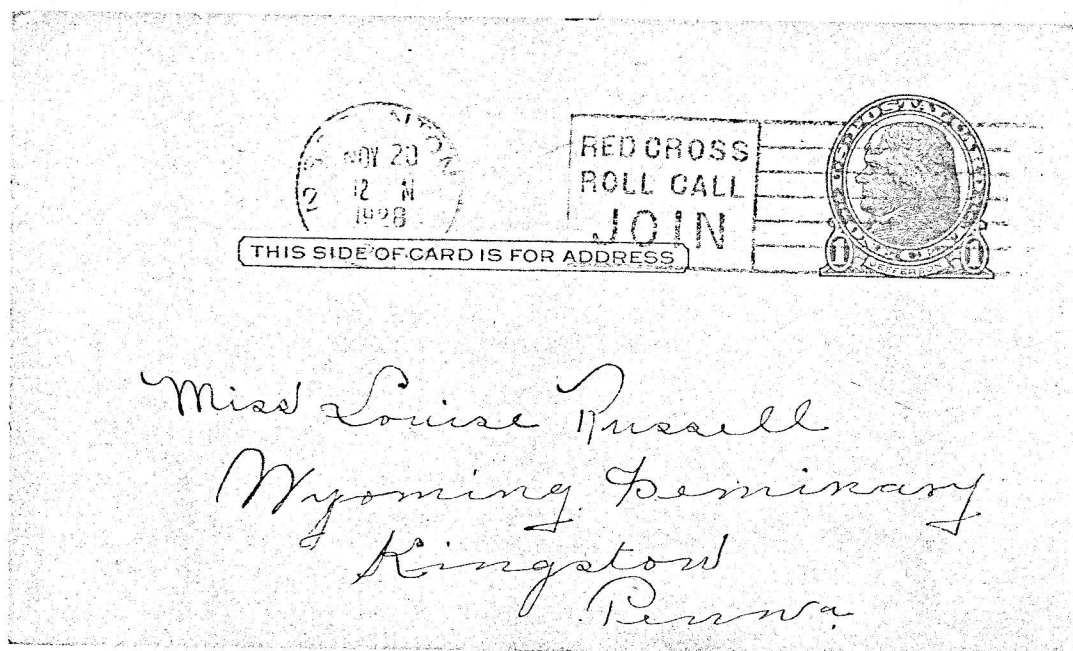 NOV 20
12 N
1928
RED CROSS
ROLL CALL
JOIN
U.S. POSTAGE
1 JEFFERSON 1
THIS SIDE OF CARD IS FOR ADDRESS
Miss Louise Russell
Wyoming Seminary
Kingston
Penna.